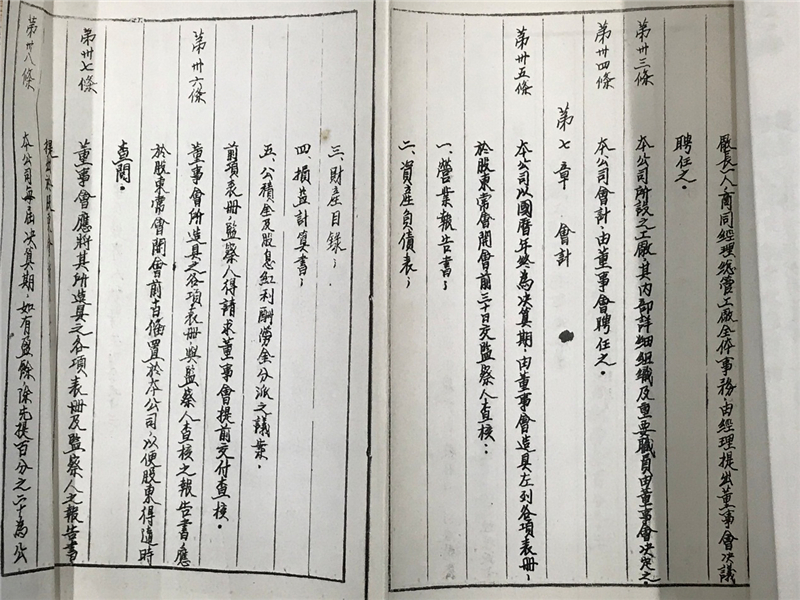 廠長一人商同經理總管工廠全体事務，由經理提出董事會決議
聘任之。
第卅三條 本公司所設之工廠，其內部詳細組織及重要職員由董事會決定之。
第卅四條 本公司會計，由董事會聘任之。
第七章 會計
第卅五條 本公司以國曆年終為决算期，由董事會造具左列各項表冊，
於股東常會開會前三十日交監察人查核：
一、營業報告書；
二、資產負債表；
三、財產目錄；
四、損益計算書；
五、公積金及股息紅利酬勞金分派之議案。
前項表冊，監察人得請求董事會提前交付查核。
第卅六條 董事會所造具之各項表冊，與監察人查核之報告書，應
於股東常會開會前 備置於本公司，以便股東得隨時
查閱。
第卅七條 董事會應將其所造具之各項表冊及監察人之報告書
提出於股東
第卅八條 本公司每屆决算期，如有盈餘除先提百分之二十為公